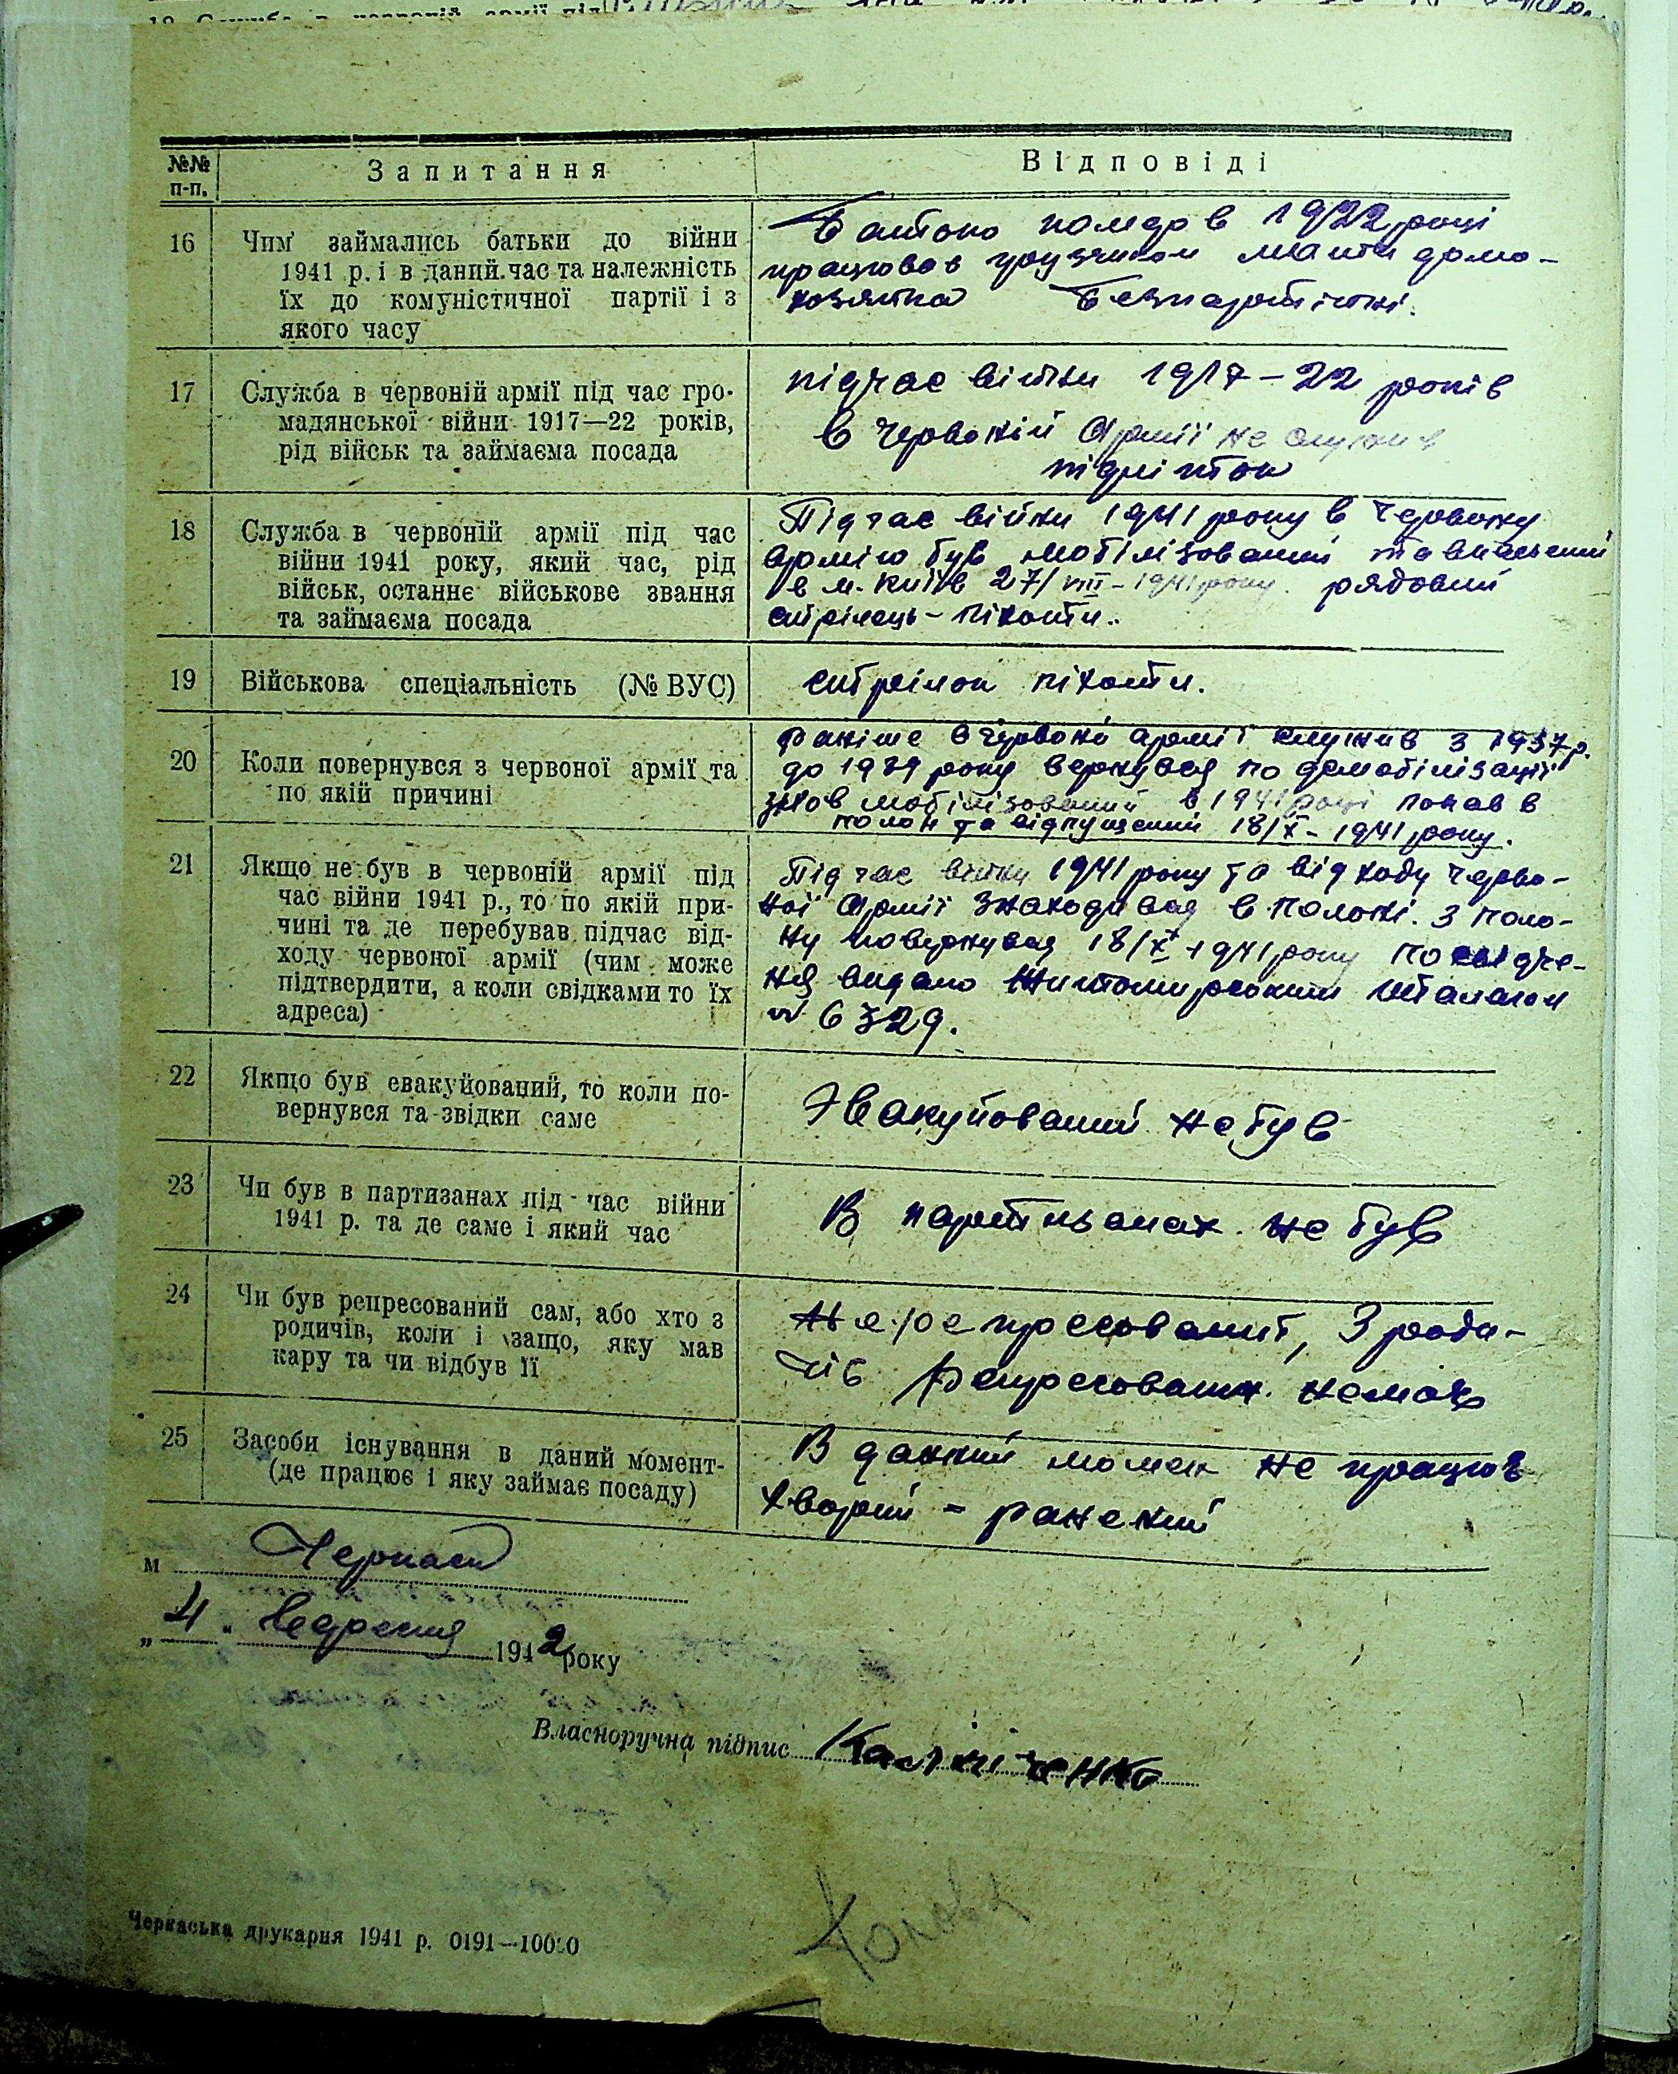 №№ п-п.
Запитання
Відповіді
16
Чим займались батьки до війни
1941 р. і в даний час та належність
їх до комуністичної партії і з
якого часу
Батько помер в 1922 році
працював грузчиком мати домо-
хозяйка Безпартійні.
17
Служба в червоній армії під час гро-
мадянської війни 1917—22 років,
рід військ та займаєма посада
підчас війни 1917-22 років
в Червоній Армії не служив
підліток
18
Служба в червоній армії під час
війни 1941 року, який час, рід
військ, останнє військове звання
та займаєма посада
Підчас війни 1941 року в Червону
армію був мобілізований
в м. Київ 27/VIII-1941 року. рядовий
стрілець - піхоти.
19
Військова спеціальність (№ ВУС)
стрілок піхоти.
20
Коли повернувся з червоної армії та
по якій причині
Раніше в Червоній армії служив з 1937 р.
до 1939 року вернувся по демобілізації
знов мобілізований в 1941 році попав в
полон та відпущений 18/X-1941 року.
21
Якщо не був в червоній армії під
час війни 1941 р., то по якій при-
чині та де перебував підчас від-
ходу червоної армії (чим може
підтвердити, а коли свідками то їх
адреса)
Підчас війни 1941 року та відходу Черво-
ної Армії знаходився в полоні. З поло-
ну повернувся 18/X-1941 року
ня видано Житомирським шталагом
№ 6329.
22
Якщо був евакуйований, то коли по-
вернувся та звідки саме
Эвакуйований не був
23
Чи був в партизанах під час війни
1941 р. та де саме і який час
В партизанах не був
24
Чи був репресований сам, або хто з
родичів, коли і защо, яку мав
кару та чи відбув її
Не репресований, З роди-
чів Репресованих немає
25
Засоби існування в даний момент
(де працює і яку займає посаду)
В данний момен не працюв
хворий - ранений
м Черкаси
„4“ вересня 1942 року
Власноручна підпис Калініченко
Черкаська друкарня 1941 р. 0191—10000